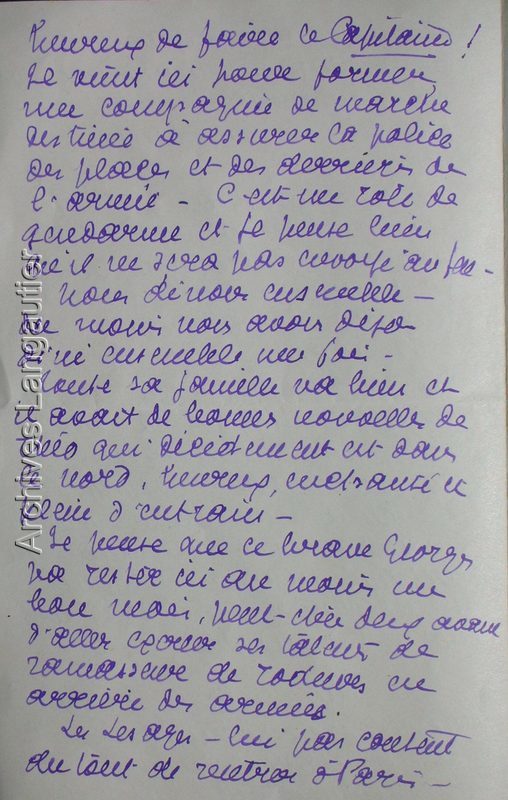 heureux de faire ce Capitaine !
Il vient ici pour former
une compagnie de marche
destinée à assurer la police
des places et des derrières de
l'armée - C'est un rôle de
gendarme et je pense bien
qu'il ne sera pas envoyé au feu -
Nous dinons ensemble -
du moins nous avons déjà
diné ensemble une fois -
Toute sa famille va bien et
avait de bonnes nouvelles de
qui décidément est dans
nord, heureux, enchanté et
plein d'entrain -
Je pense que ce brave Georges
va rester ici au moins un
bon mois, peut-être deux avant
d'aller exercer ses talents de
ramasseur de rodeurs en
arrière des armées.
Les Lesage - lui pas content
du tout de rentrer à Paris -
Archives Langautier